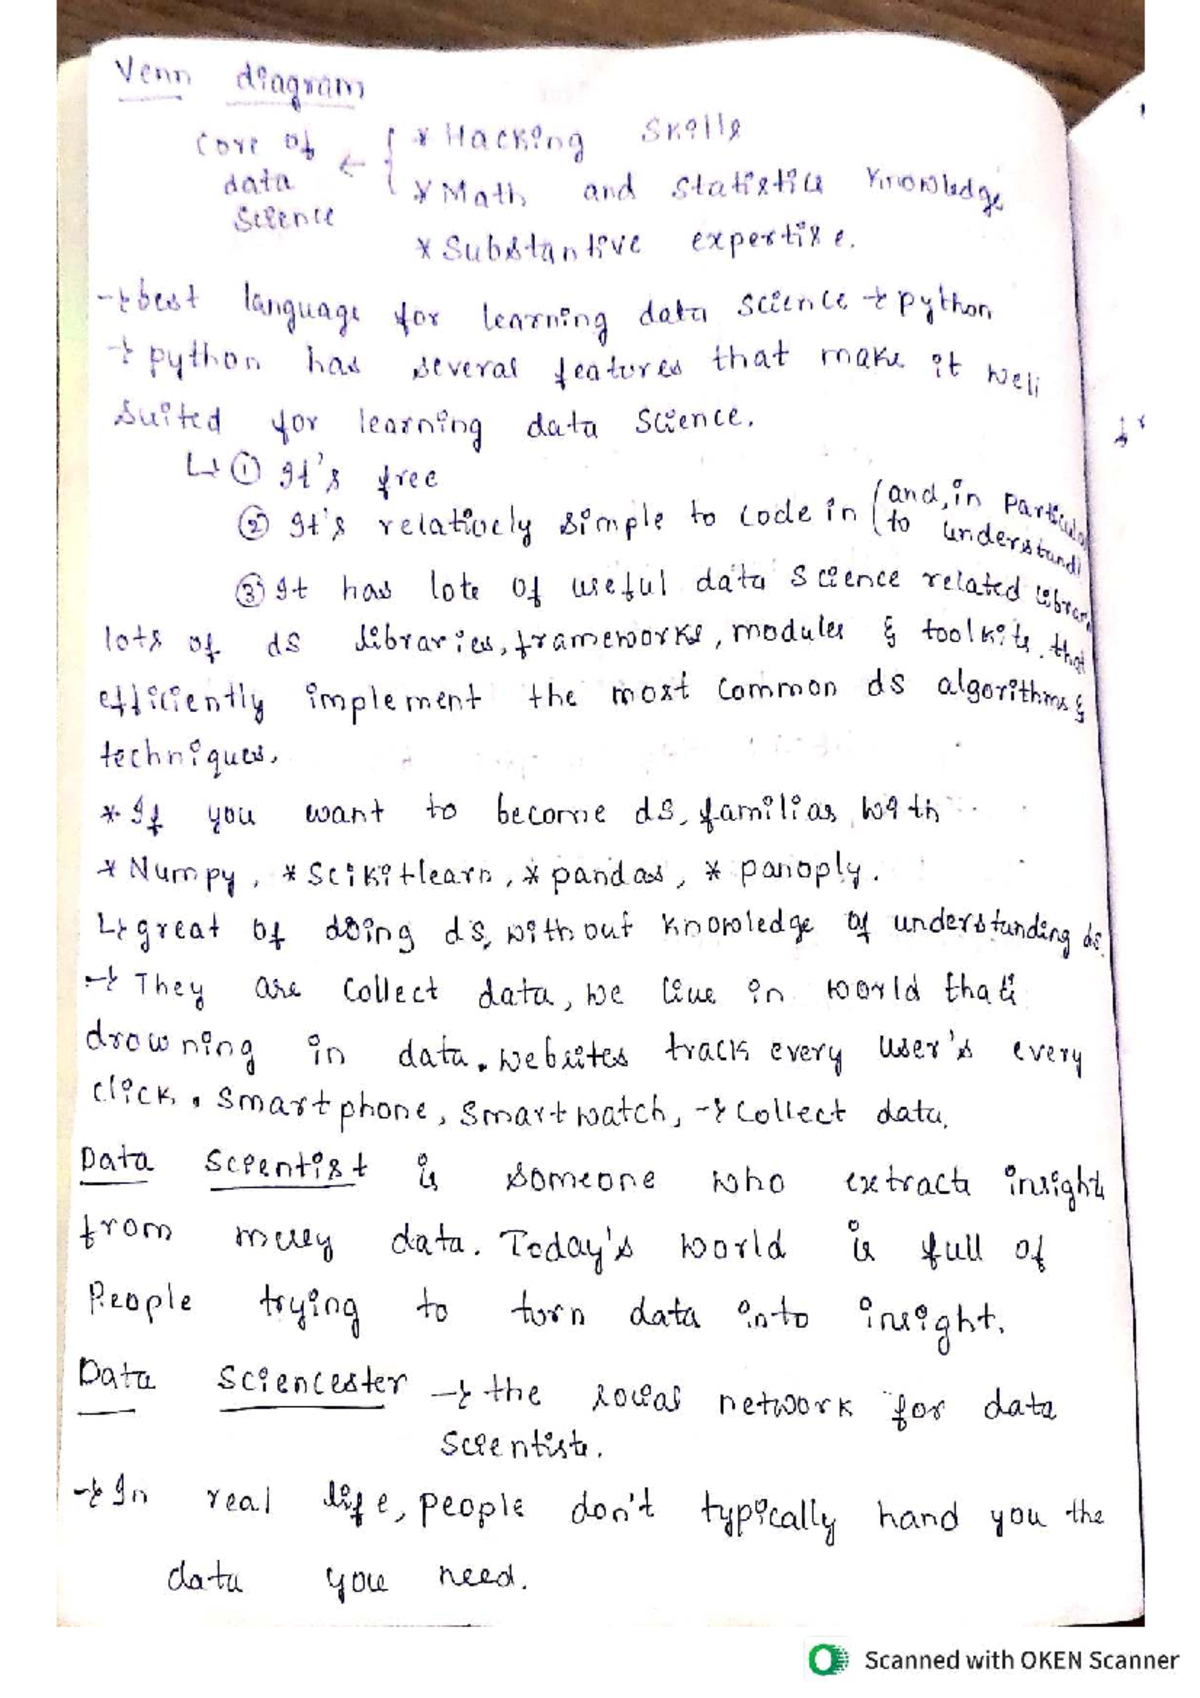 Venn diagram
core of data Science ← { * Hacking Skills
* Math and statistics knowledge
* Substantive expertise.
→ best language for learning data science → python
→ python has several features that make it well
suited for learning data science.
↳ ① It's free
② It's relatively simple to code in (and, in particular
to understand)
③ It has lots of useful data science related librar
lots of ds libraries, frameworks, modules & toolkits. that
efficiently implement the most common ds algorithms &
techniques.
* If you want to become ds, familias with
* Numpy, * Scikitlearn, * pandas, * panoply.
↳ great of doing ds, without knowledge of understanding ds.
→ They are collect data, we live in world that's
drowning in data. websites track every user's every
click, smartphone, smartwatch, → collect data.
Data Scientist is someone who extracts insights
from messy data. Today's world is full of
People trying to turn data into insight.
Data Sciencester → the social network for data
Scientists.
→ In real life, people don't typically hand you the
data you need.
Scanned with OKEN Scanner